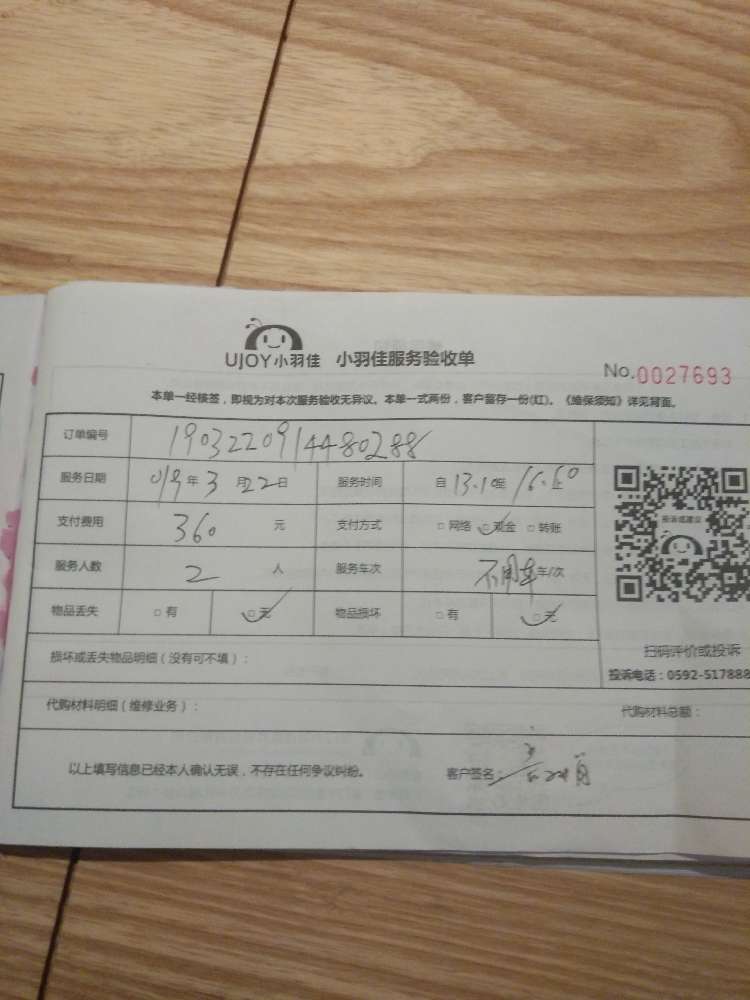 UJOY小羽佳 小羽佳服务验收单
No.0027693
本单一经核签，即视为对本次服务验收无异议。本单一式两份，客户留存一份(红)。《维保须知》详见背面。
订单编号 1903220914480288
服务日期 019年3月22日 服务时间 自13.10起 16.60止
支付费用 360元 支付方式 □网络 □现金 □转账
服务人数 2人 服务车次 不用车 车/次
物品丢失 □有 □无 物品损坏 □有 □无
投诉或建议
扫码评价或投诉
投诉电话：0592-517888
损坏或丢失物品明细（没有可不填）：
代购材料明细（维修业务）： 代购材料总额：
以上填写信息已经本人确认无误，不存在任何争议纠纷。 客户签名：